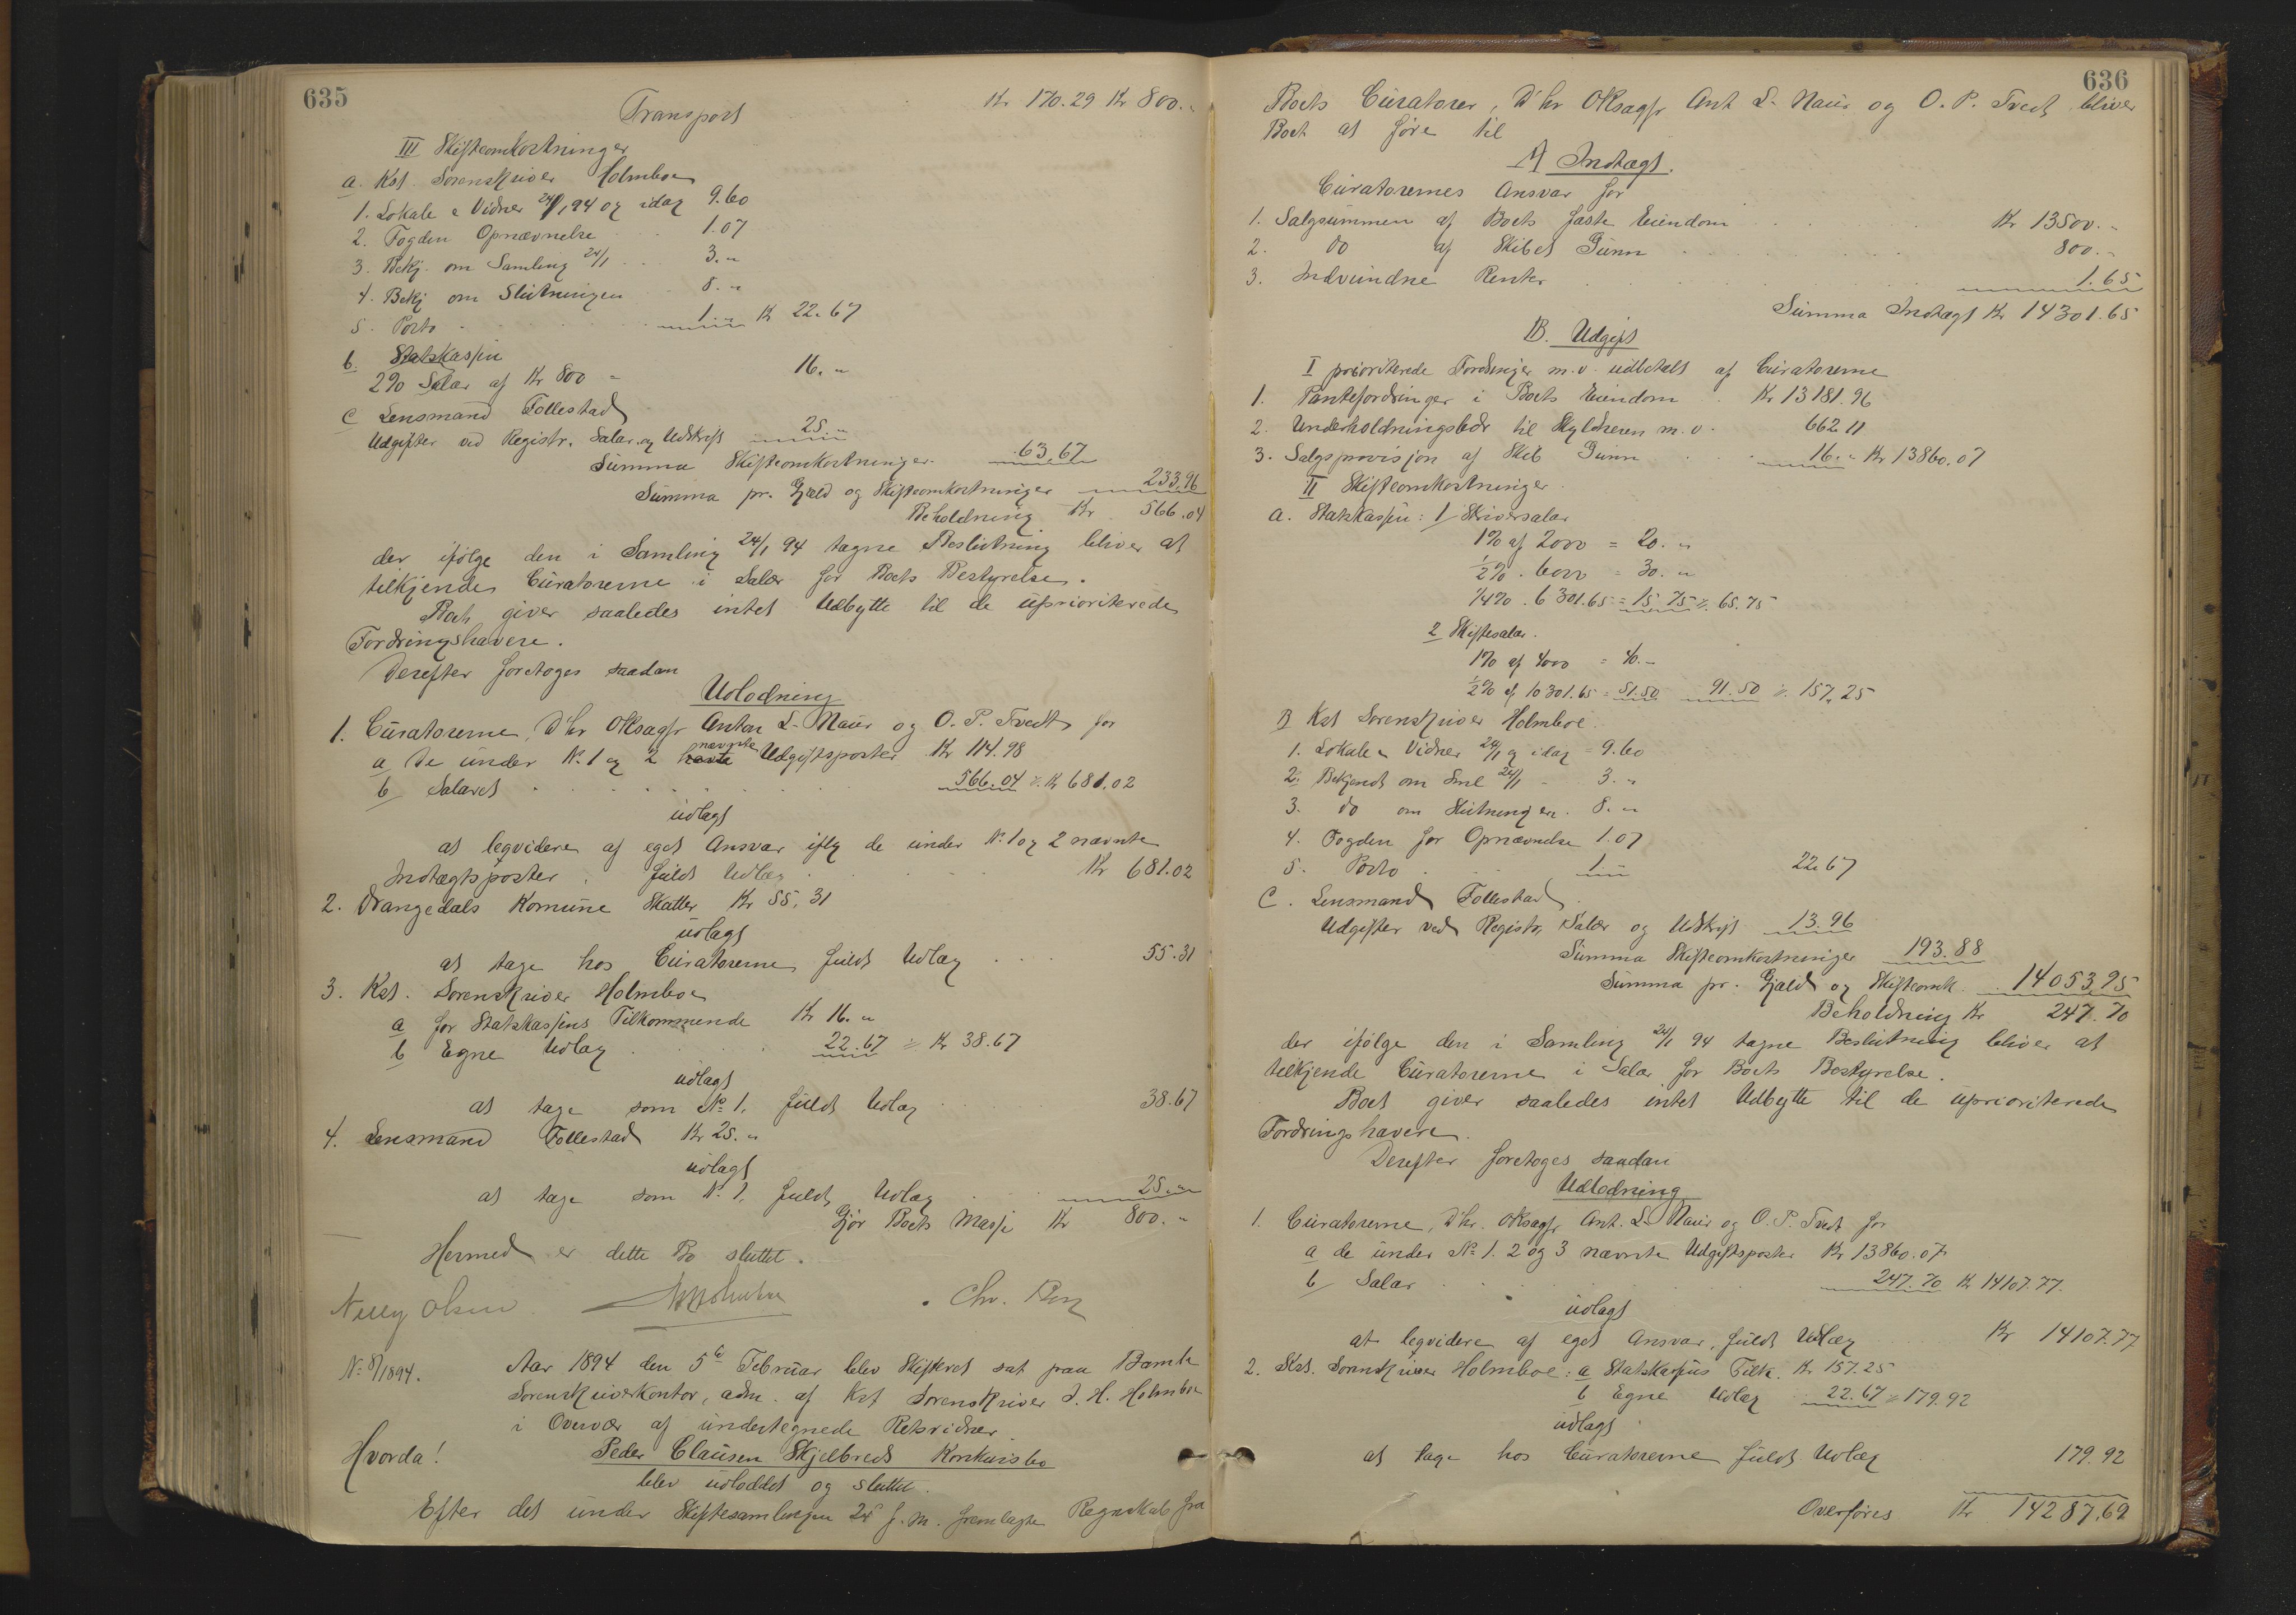 635
Transport Kr 170.29 Kr 800.„
III Skifteomkostninger
a. Kst. Sorenskriver Holmboe
1. Lokale & Vidner 24/1 94 og idag 9.60
2. Fogden Opnævnelse 1.07
3. Bekj. om Samling 24/1 3.„
4. Bekj om Slutningen 8.„
5. Porto 1.„ Kr 22.67
b. Statskassen
2% Salær af Kr 800 = 16.„
C Lensmand Tollestad
Udgifter ved Registr. Salær og Udskrift 25.„
Summa Skifteomkostninger 63,67
Summa pr. Gjæld og Skifteomkostninger 233,96
Beholdning Kr 566.04
der ifølge den i Samling 24/1 94 tagne Beslutning bliver at
tilkjendes Curatorerne i Salær for Boets Bestyrelse.
Boet giver saaledes intet Udbytte til de uprioriterede
Fordringshavere.
Derefter foretoges saadan
Udlodning
1. Curatorerne, D'hr OKsagfr Anton L. Naur og O. P. Tvedt for
a De under No 1 og 2 nævnte Udgiftsposter Kr 114.98
b Salæret 566.04 Kr 681.02
udlagt
at leqvidere af eget Ansvar iflg de under No 1 og 2 nævnte
Indtægtsposter. fuldt Udlæg Kr 681.02
2. Drangedals Komune Skatter Kr 55,31
udlagt
at tage hos Curatorerne fuldt Udlæg 55.31
3. Kst. Sorenskriver Holmboe
a for Statskassens Tilkommende Kr 16.„
b Egne Udlæg 22.67 Kr 38.67
udlagt
at tage som No 1, fuldt Udlæg 38.67
4. Lensmand Tollestad Kr 25.„
udlagt
at tage som No 1, fuldt Udlæg 25.„
Gjør Boets Masse Kr 800.„
Hermed er dette Bo sluttet.
Nelly Olsen Chr.
No 8/1894. Aar 1894 den 5te Februar blev Skifteret sat paa Bamble
Sorenskriverkontor, adm. af Kst Sorenskriver J. H. Holmboe
i Overvær af undertegnede Retsvidner.
Hvorda! Peder Clausen Skjelbreds Konkursbo
blev udloddet og sluttet.
Efter det under Skiftesamlingen 24 f. m. fremlagte Regnskab fra
636
Boets Curatorer, D'hr OKsagfr Ant L. Naur og O. P. Tvedt bliver
Boet at føre til
A Indtægt.
Curatorernes Ansvar for
1. Salgsummen af Boets faste Eiendom Kr 13500.„
2. do af Skibet Gunn 800.„
3. Indvundne Renter 1.65
Summa Indtægt Kr 14301.65
B. Udgift
I prioriterede Fordringer m.v. udbetalt af Curatorerne
1. Pantefordringer i Boets Eiendom Kr 13181.96
2. Underholdningsbidr til Skyldneren m.v. 662.11
3. Salgsprovisjon af Skib Gunn 16.„ Kr 13860.07
II Skifteomkostninger
a. Statskassen: 1/ Skriversalær
1% af 2000 = 20.„
1/2% . 6000 = 30.„
1/4% . 6301.65 = 15,75 65.75
2 Skiftesalær.
1% af 4000 = 40.„
1/2% af 10301.65 = 51.50 91.50 157,25
B Kst Sorenskriver Holmboe
1. Lokale & Vidner 24/1 og idag = 9.60
2. Bekjendt om Saml 24/1 - 3.„
3. do om Slutningen. 8.„
4. Fogden for Opnævnelse 1.07
5. Porto 1 „ 22.67
C. Lensmand Tollestad
Udgifter ved Registr, Salær og Udskrift 13.96
Summa Skifteomkostninger 193.88
Summa pr. Gjæld og Skifteomk. 14053,95
Beholdning Kr 247.70
der ifølge den i Samling 24/1 94 tagne Beslutning bliver at
tilkjende Curatorerne i Salær for Boets Bestyrelse.
Boet giver saaledes intet Udbytte til de uprioriterede
Fordringshavere.
Derefter foretoges saadan
Udlodning
1. Curatorerne, D'hr. OKsagfr Ant. L. Naur og O. P. Tvedt for
a de under No 1. 2 og 3 nævnte Udgiftsposter Kr 13860.07
b Salær 247.70 Kr 14107.77.
udlagt
at leqvidere af eget Ansvar, fuldt Udlæg Kr 14107.77
2. Kst. Sorenskriver Holmboe: a Statskassens Tilk. Kr 157.25
b Egne Udlæg 22.67 179.92
udlagt
at tage hos Curatorerne fuldt Udlæg 179.92
Overføres Kr 14287,69